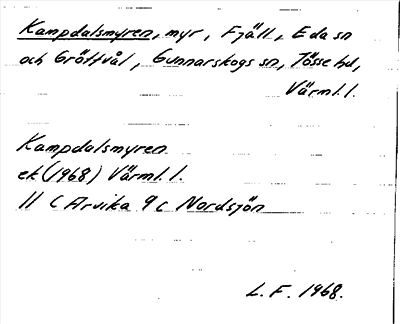 Kampdalsmyren, myr, Fjäll, Eda sn
och Gröttvål, Gunnarskogs sn, Jösse hd,
Värml. l.
Kampdalsmyren
ek (1968) Värml. l.
11 C Arvika 9 c Nordsjön
L. F. 1968.